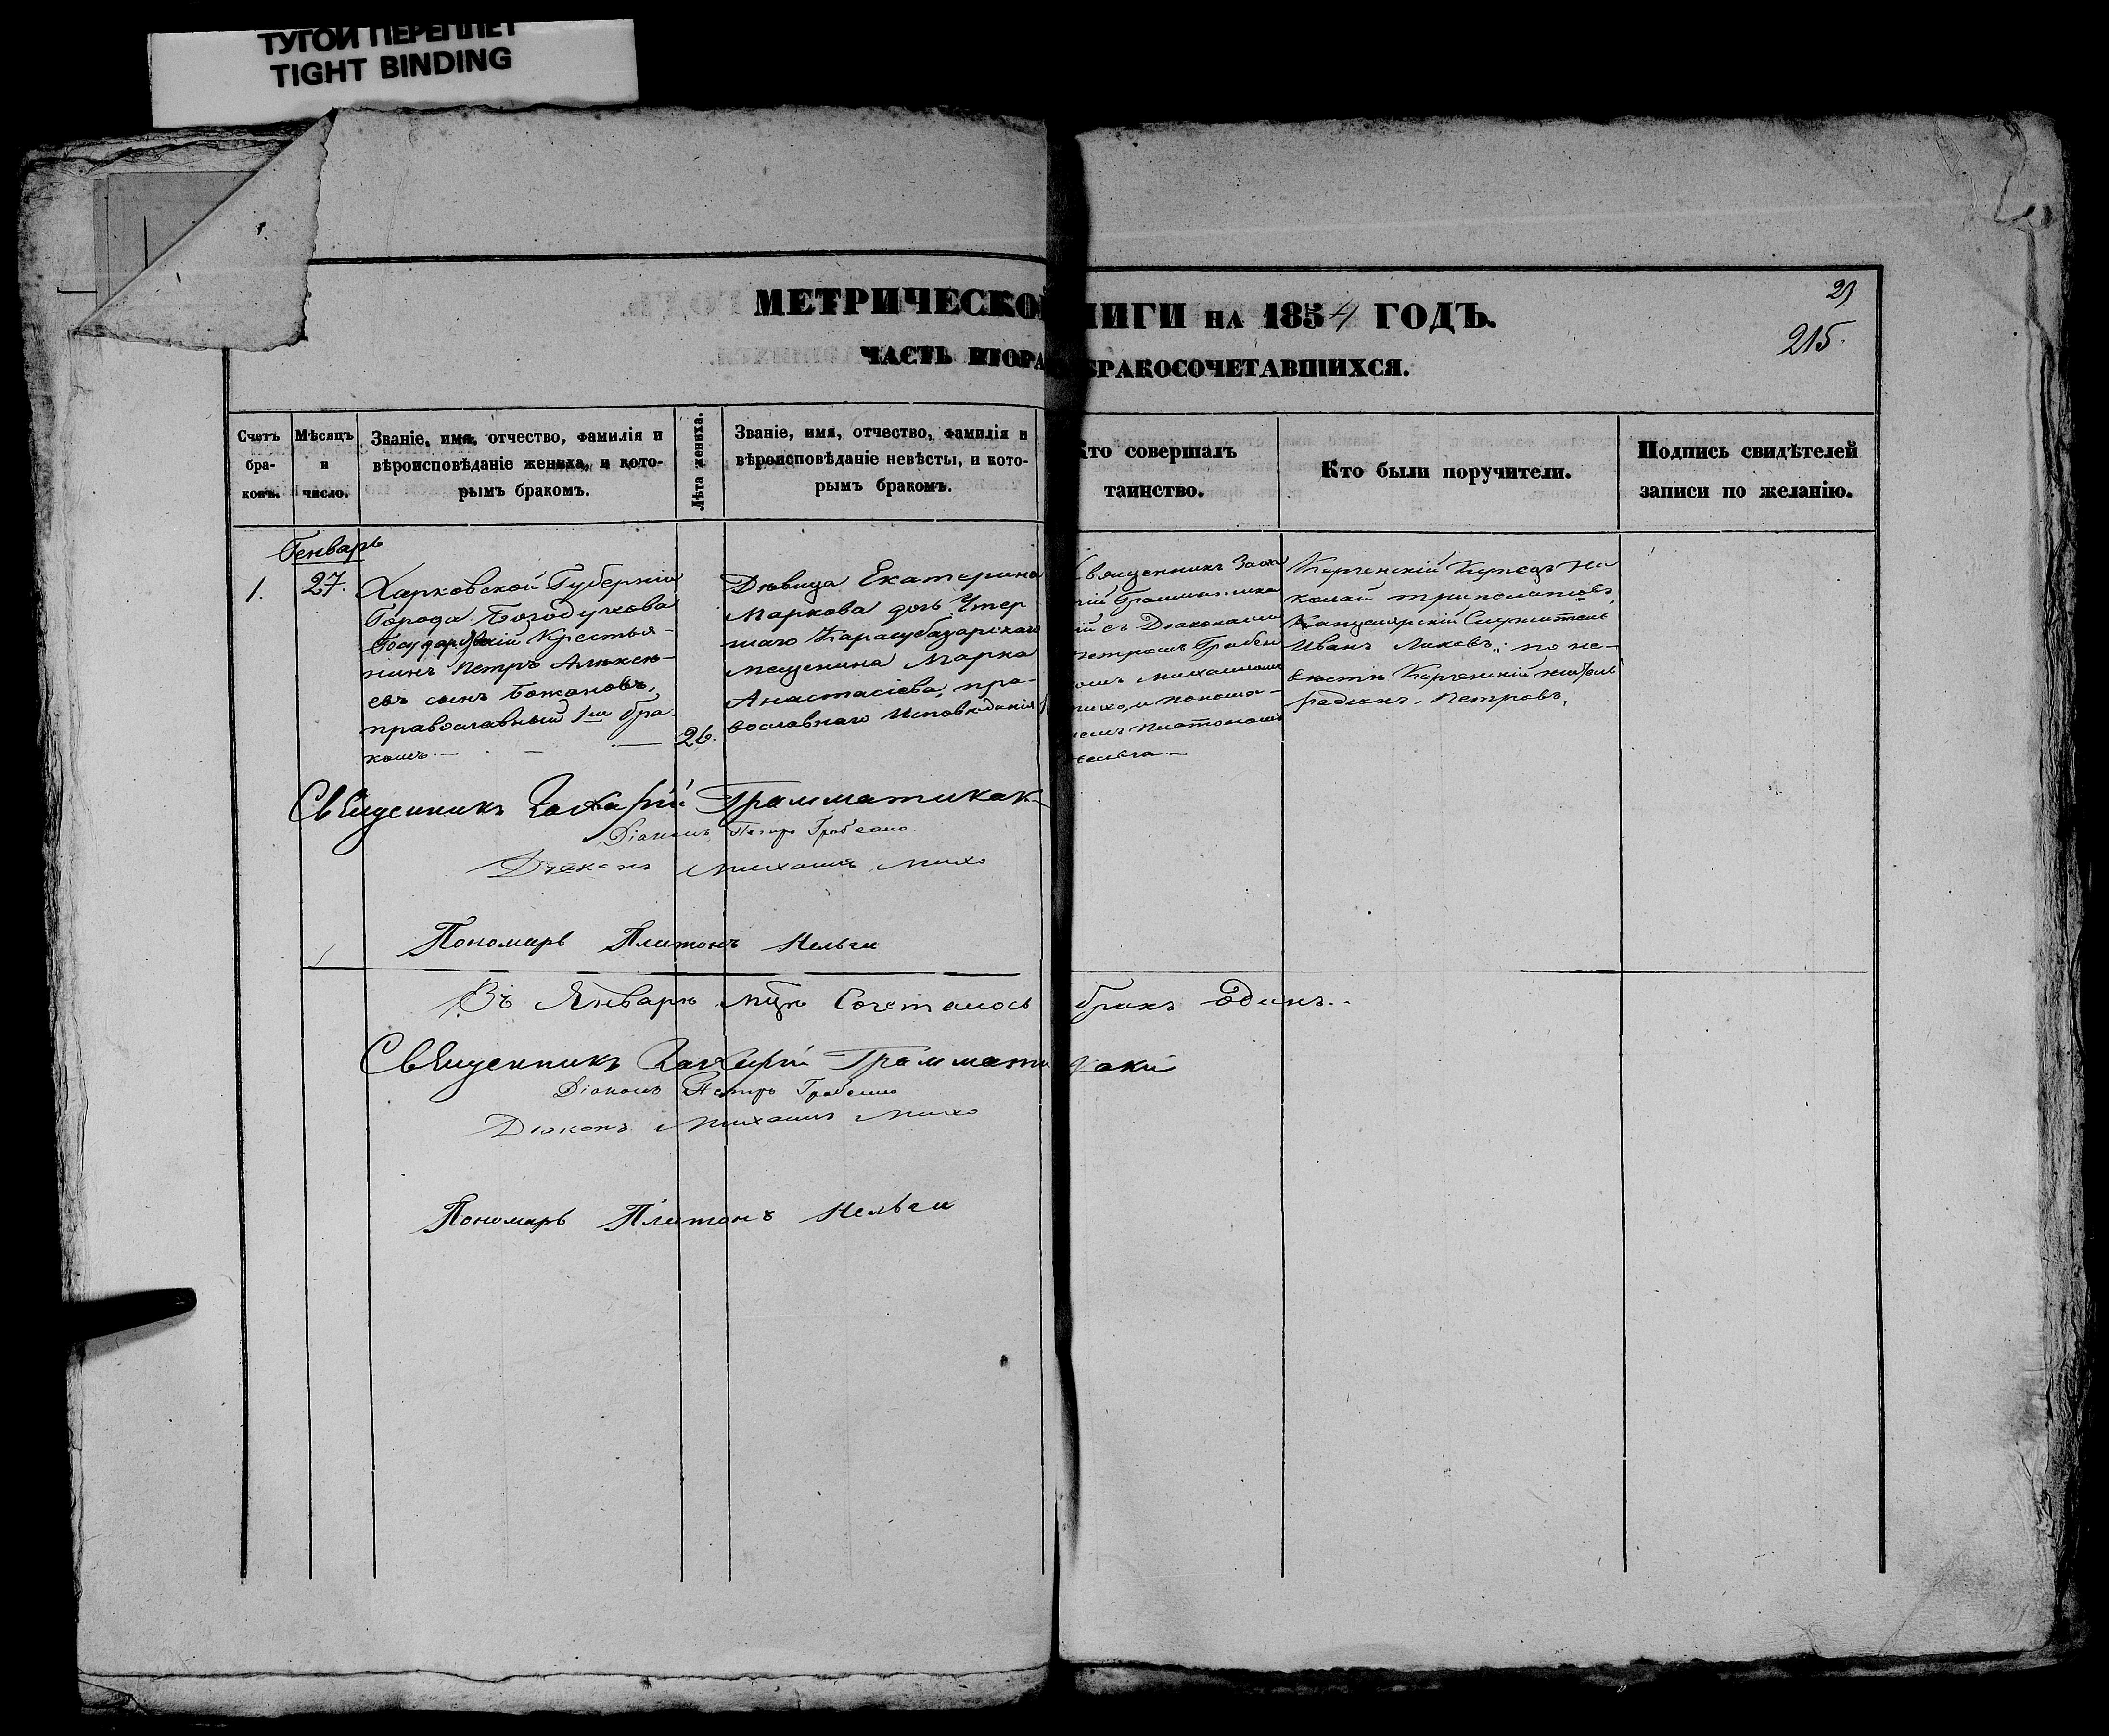 ТУГОЙ ПЕРЕПЛЕТ
TIGHT BINDING
МЕТРИЧЕСКОЙ НИГИ НА 1854 ГОДЪ.
21
215.
ЧАСТЬ ВТОРА БРАКОСОЧЕТАВШИХСЯ.
Счетъ бра-ковъ.
Мѣсяцъ и число.
Званіе, имя, отчество, фамилія и
вѣроисповѣданіе жениха, и кото-
рымъ бракомъ.
Лѣта жениха.
Званіе, имя, отчество, фамилія и
вѣроисповѣданіе невѣсты, и кото-
рымъ бракомъ.
Кто совершалъ
таинство.
Кто были поручители.
Подпись свидѣтелей
записи по желанію.
Генварь
1.
27.
Харковской Губерніи
Города Богодухова
Государствій Крестья-
нинъ Петръ Алексѣ-
евъ сынъ Божановъ,
православный 1мъ бра-
комъ.
26.
Дѣвица Екатерина
Маркова дочь Умер
шаго Карасубазарскаго
мещенина Марка
Анастасіева, пра-
вославнаго Исповѣданія
Священникъ Заха
рій Грамматика
ій съ Діаконами
Петромъ Грабен
омъ Михаиломъ
михо, и понома-
ремъ Платономъ
Нельга
Керченскій Купецъ Ни
колай
Канцелярскій Служитель
Иванъ Ликовъ,: по не-
вѣстѣ Керченскій житель
Радіонъ Петровъ,
Священникъ Захарій Грамматикак-
Діаконъ Петръ Грабенко
Діаконъ Михаилъ Михо
Пономарь Платонъ Нельги
Въ Январѣ мцѣ Сочеталось бракъ одинъ.
Священникъ Захарій Граммати каки
Діаконъ Петръ Грабенко
Діаконъ Михаилъ Михо
Пономарь Платонъ Нельги